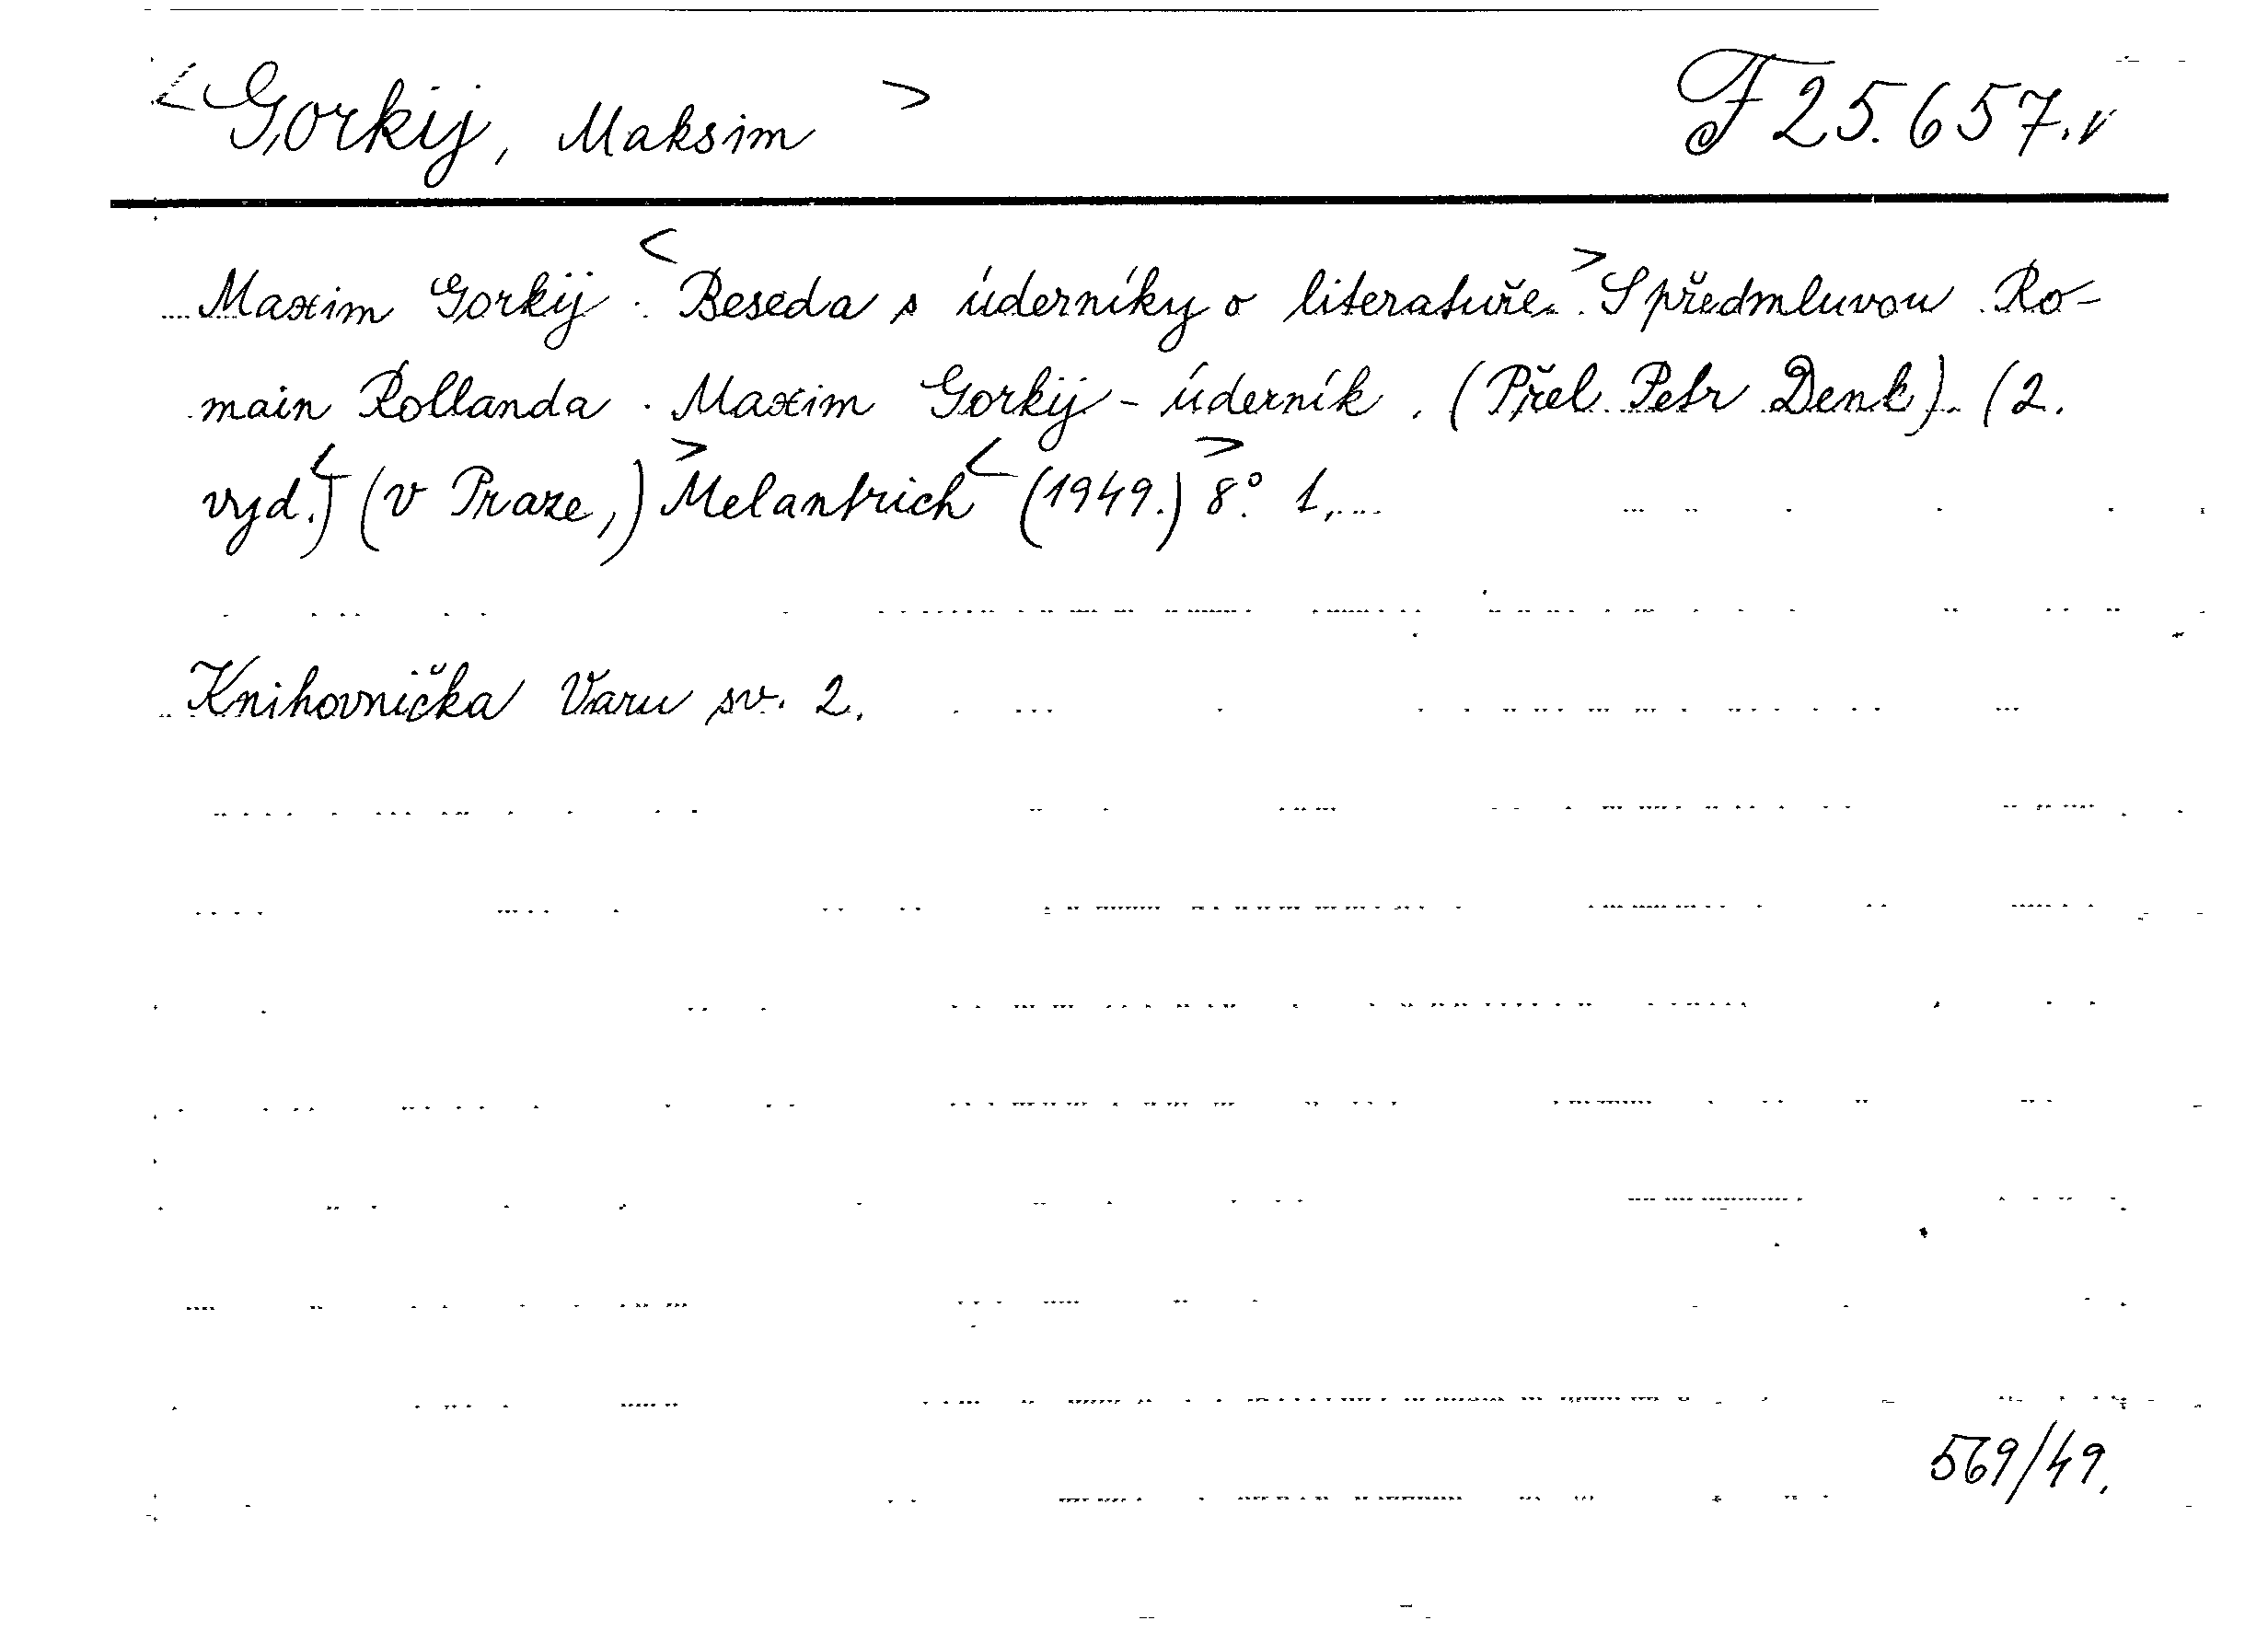 <Gorkij, Maksim> F 25.657.v
Maxim Gorkij. <Beseda s úderníky o literatuře.> S předmluvou Ro-
main Rollanda. Maxim Gorkij - úderník. (Přel. Petr Denk). (2.
vyd.) <(v Praze,)> Melantrich <(1949.)> 8° 1,
Knihovnička Varu sv. 2.
569/49.